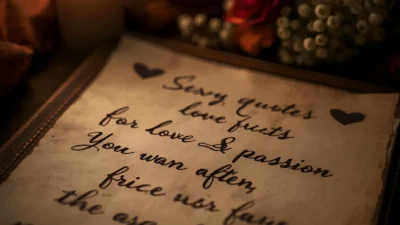 Sexy quotes
love fruts
for love & passion
You wan aften,
frice nor
the